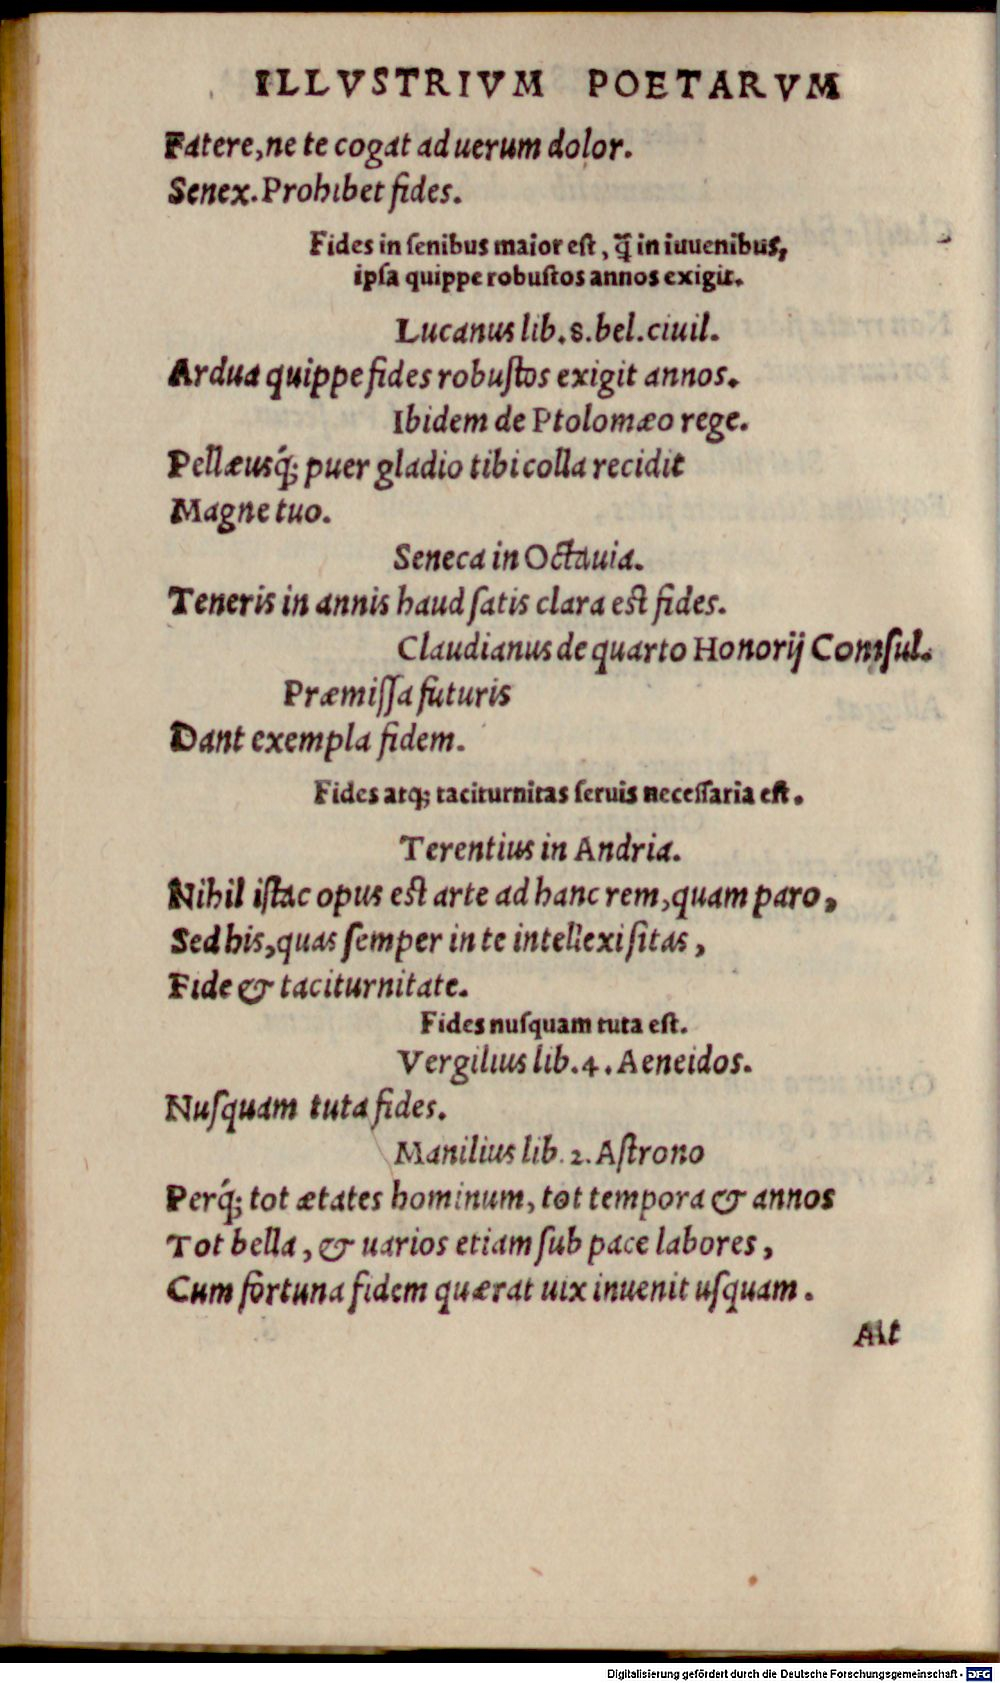 ILLVSTRIVM POETARVM
Fatere, ne te cogat ad uerum dolor.
Senex. Prohibet fides.
Fides in ſenibus maior eſt, q̃ in iuuenibus,
ipſa quippe robuſtos annos exigit.
Lucanus lib. 8. bel. ciuil.
Ardua quippe fides robuſtos exigit annos.
Ibidem de Ptolomæo rege.
Pellæusq́; puer gladio tibi colla recidit
Magne tuo.
Seneca in Octauia.
Teneris in annis haud ſatis clara eſt fides.
Claudianus de quarto Honorij Conſul.
Præmiſſa futuris
Dant exempla fidem.
Fides atq; taciturnitas ſeruis neceſſaria eſt.
Terentius in Andria.
Nihil iſtac opus eſt arte ad hanc rem, quam paro,
Sed his, quas ſemper in te intellexi ſitas,
Fide & taciturnitate.
Fides nuſquam tuta eſt.
Vergilius lib. 4. Aeneidos.
Nuſquam tuta fides.
Manilius lib. 2. Aſtrono
Perq́; tot ætates hominum, tot tempora & annos
Tot bella, & uarios etiam ſub pace labores,
Cum fortuna fidem quærat uix inuenit uſquam.
Ait
Digitalisierung gefördert durch die Deutsche Forschungsgemeinschaft - DFG